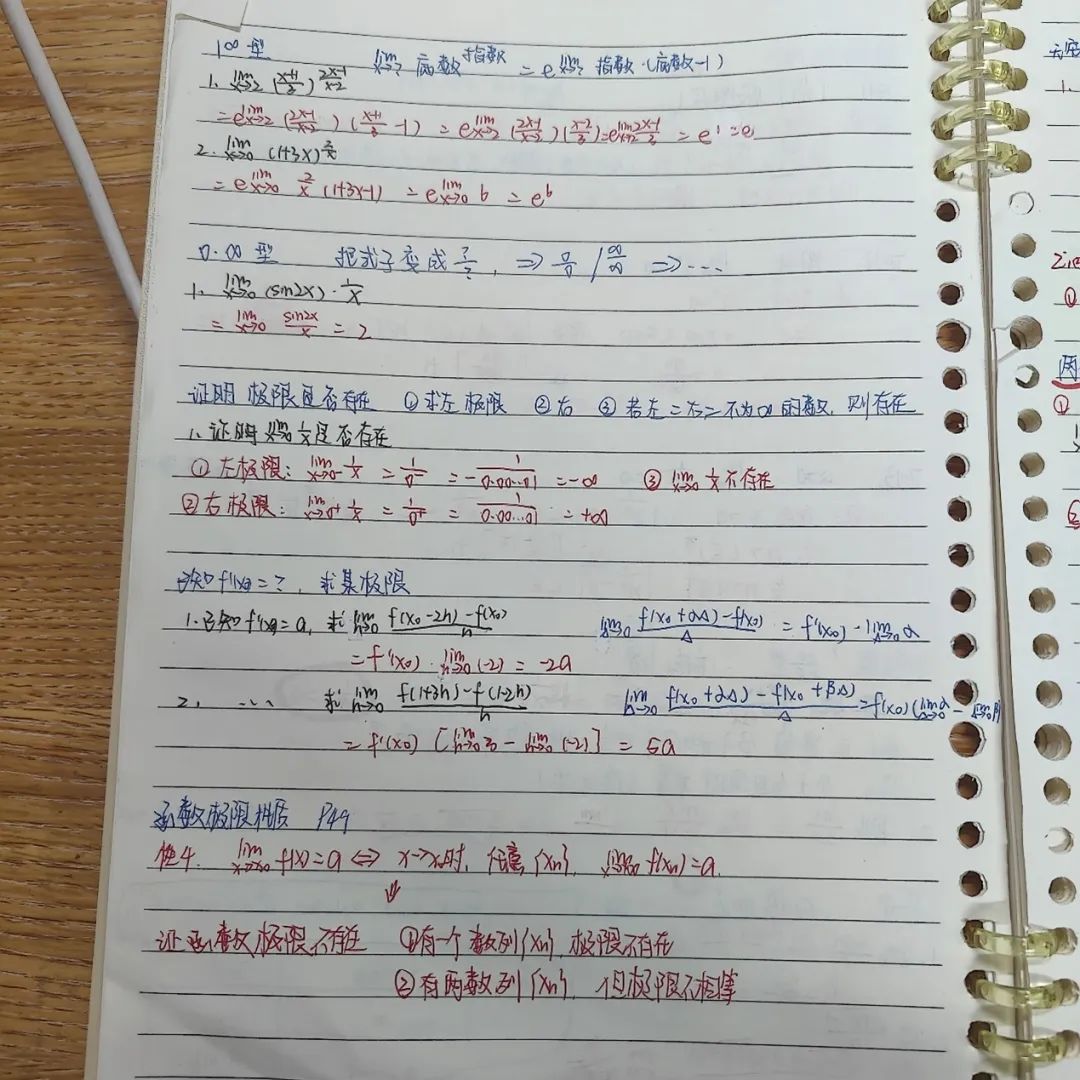 1^∞ 型 lim x→? 底数^指数 = e^lim x→? 指数·(底数-1)
1. lim x→2 (x+1/3)^2x-1/x-2
= e^lim x→2 (2x-1/x-2)(x+1/3 -1) = e^lim x→2 (2x-1/x-2)(x-2/3) = e^lim x→2 2x-1/3 = e^1 = e
2. lim x→0 (1+3x)^2/x
= e^lim x→0 2/x (1+3x-1) = e^lim x→0 6 = e^6
0·∞ 型 把式子变成 ?/? , ⇒ 0/0 / ∞/∞ ⇒ ...
1. lim x→0 (sin2x)·1/x
= lim x→0 sin2x/x = 2
证明极限是否存在 ①求左极限 ②右 ③若左=右=不为∞的数,则存在
1. 证明 lim x→0 1/x 是否存在
①左极限: lim x→0⁻ 1/x = 1/0⁻ = -1/0.00...01 = -∞ ③ lim x→0 1/x 不存在
②右极限: lim x→0⁺ 1/x = 1/0⁺ = 1/0.00...01 = +∞
已知f'(x₀)=?, 求某极限
1. 已知f'(x₀)=a, 求 lim h→0 f(x₀-2h)-f(x₀)/h lim Δ→0 f(x₀+αΔ)-f(x₀)/Δ = f'(x₀)·lim Δ→0 α
= f'(x₀)·lim h→0 (-2) = -2a
2. ... 求 lim h→0 f(1+3h)-f(1-2h)/h lim Δ→0 f(x₀+αΔ)-f(x₀+βΔ)/Δ = f'(x₀)(lim Δ→0 α - lim Δ→0 β
= f'(x₀) [lim h→0 3 - lim h→0 (-2)] = 5a
函数极限性质 P49
性4. lim x→x₀ f(x)=a ⇔ x→x₀时, 任意{xn}, lim f(xn)=a.
⇓
证函数极限不存在 ①有一个数列{xn}, 极限不存在
②有两数列{xn}, 但极限不相等
1.
①
①